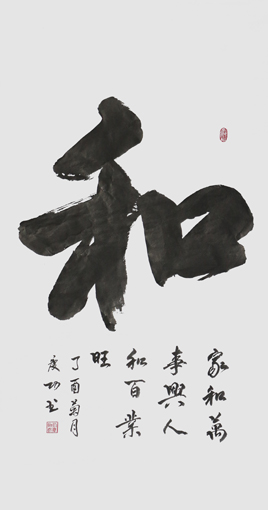 和
家和萬
事興人
和百業
旺
丁酉菊月
度功书